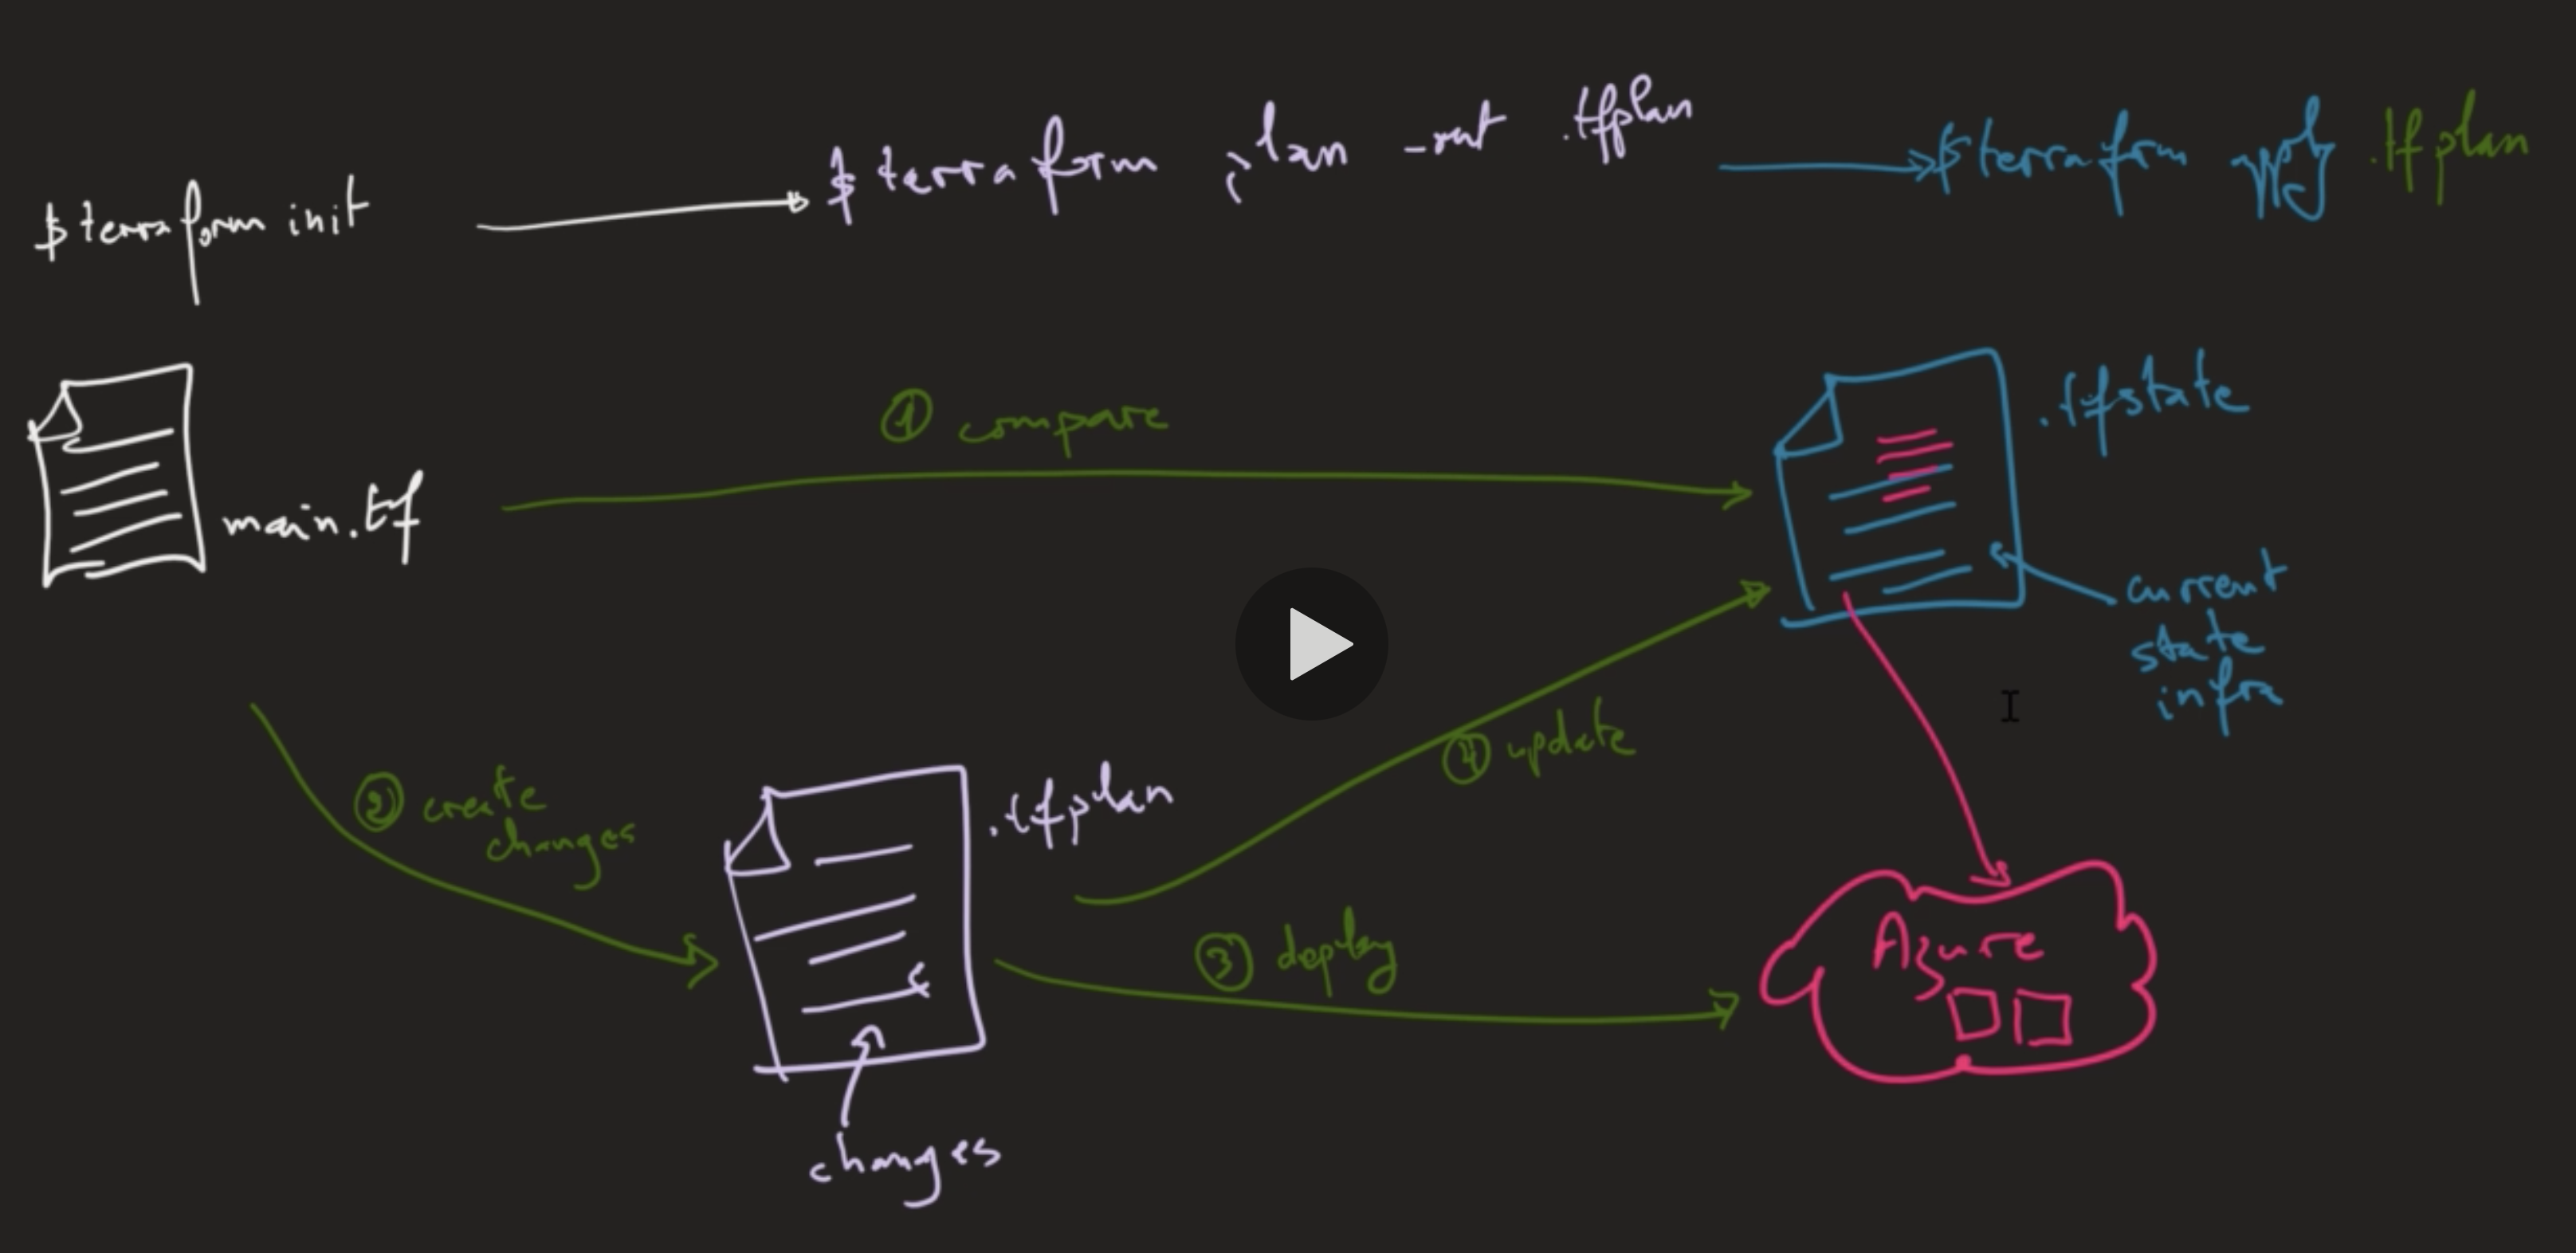 $ terraform init
$ terraform plan -out .tfplan
$ terrafrm apply .tfplan
① compare
.tfstate
main.tf
current
state
infra
② create
changes
.tfplan
④ update
③ deploy
Azure
changes